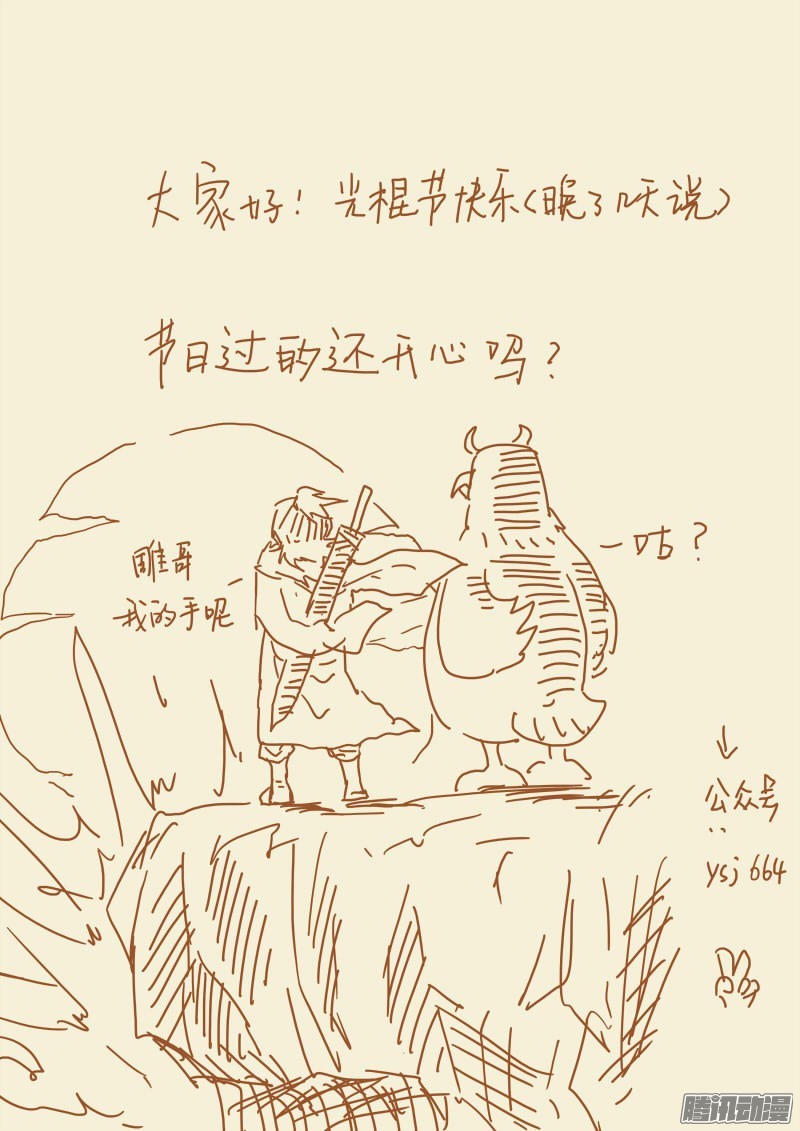 大家好！光棍节快乐（晚了吠说）
节日过的还开心吗？
雕哥
我的手呢
咕？
公众号
：
ysj664
腾讯动漫